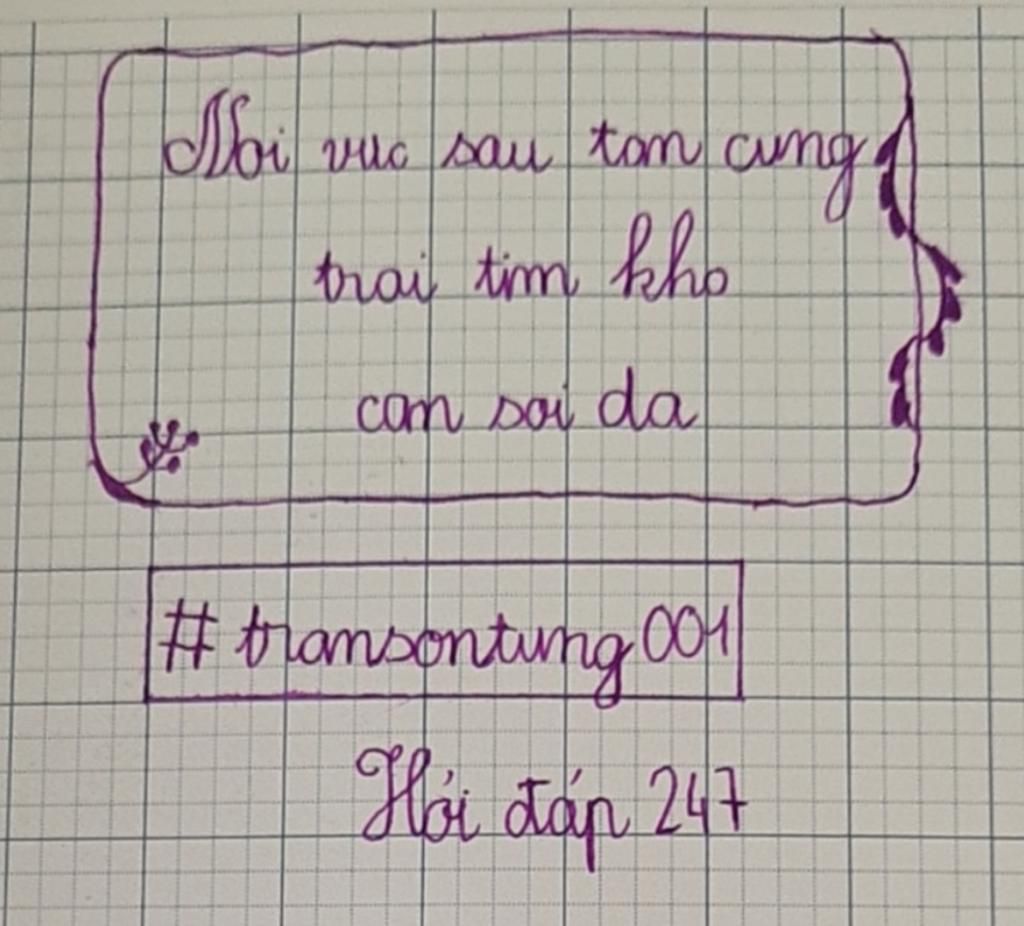 Noi vuc sau tan cung
trai tim kho
can soi da
#transontung001
Hỏi đáp 247